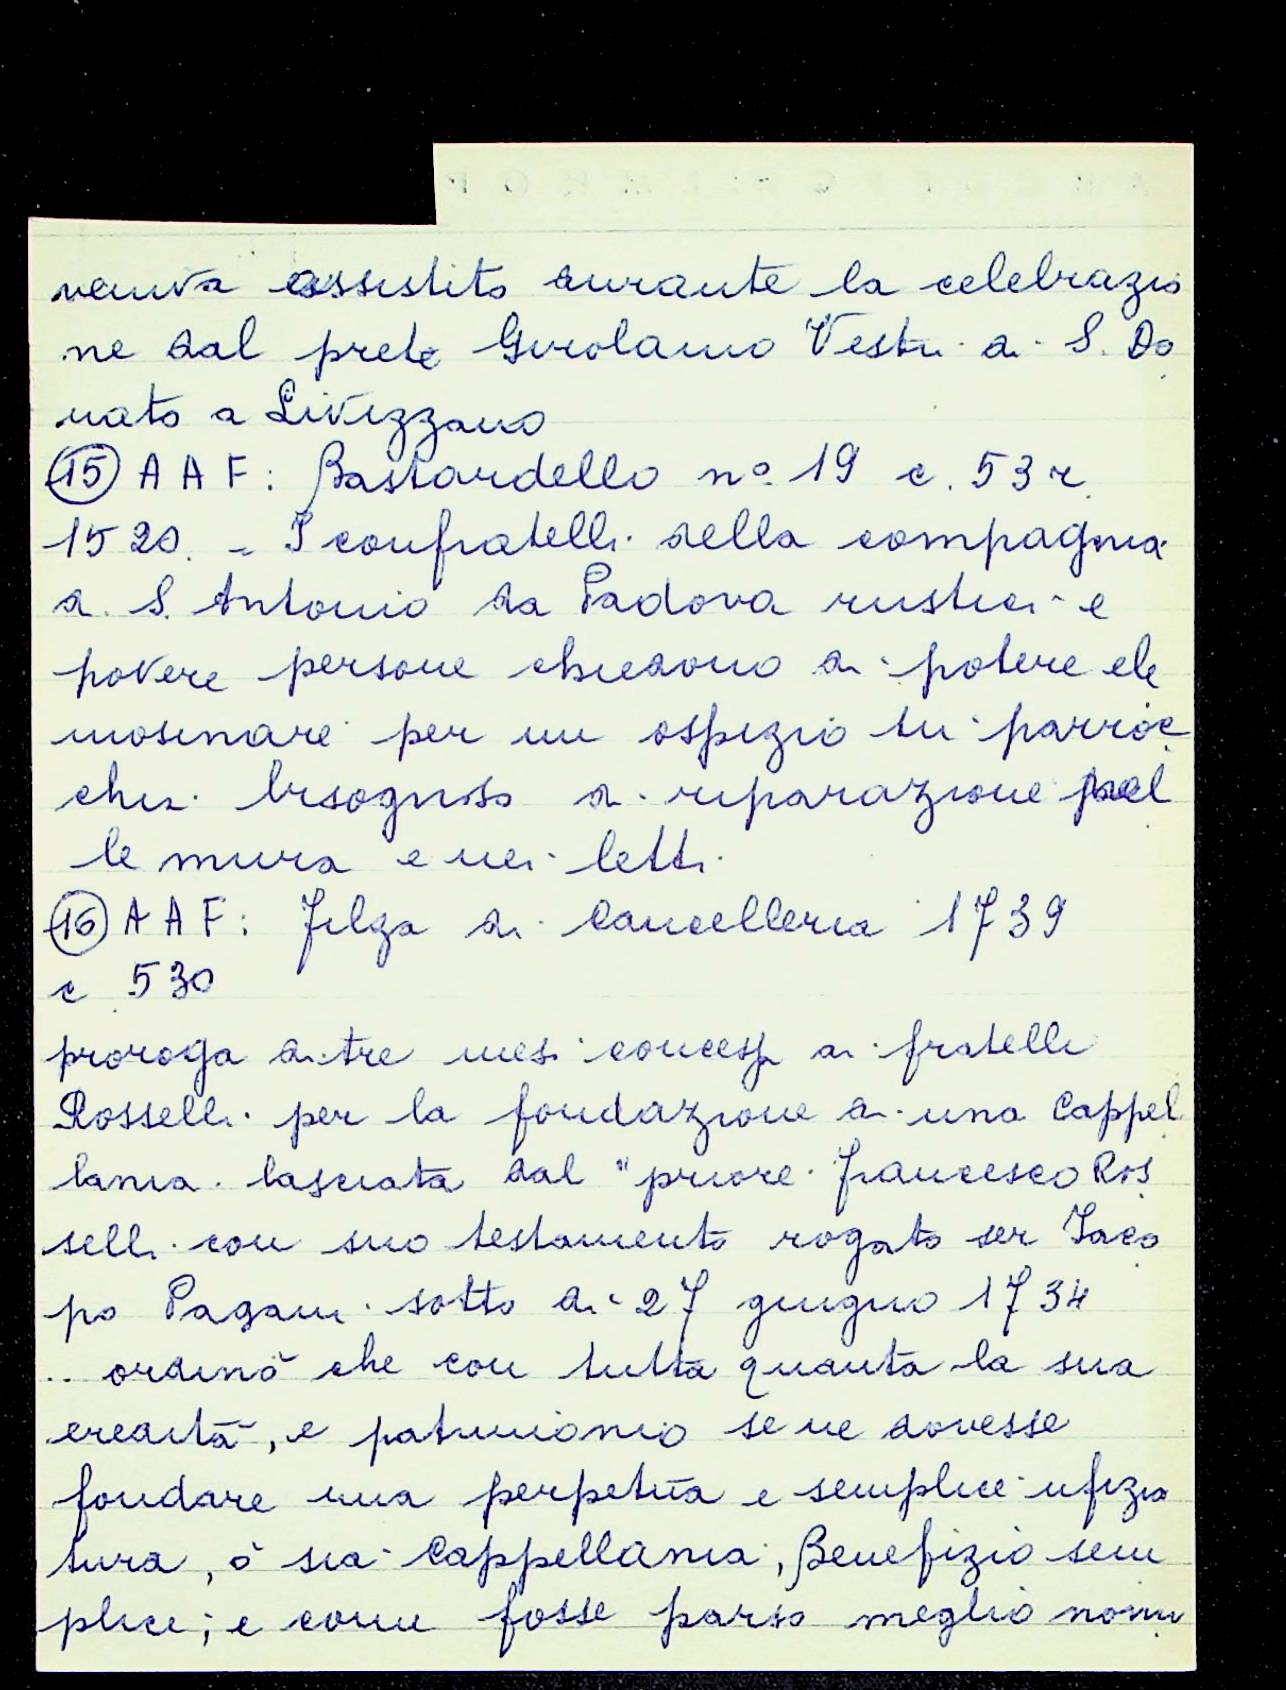 veniva assistito durante la celebrazio
ne dal prete Girolamo Vestri di S. Do
nato a Livizzano
(15) A A F: Bastardello n° 19 c. 53 r.
1520. - I confratelli della compagnia
di S. Antonio da Padova rustici e
povere persone chiedono di potere ele
mosinare per un ospizio in parroc
chia bisognoso di riparazione nel
le mura e nei letti.
(16) A A F: Filza di Cancelleria 1739
c 530
proroga di tre mesi concessa ai fratelli
Rosselli per la fondazione di una Cappel
lania lasciata dal "priore Francesco Ros
selli con suo testamento rogato ser Jaco
po Pagani sotto dì 27 giugno 1734
.. ordinò che con tutta quanta la sua
eredità, e patrimonio se ne dovesse
fondare una perpetua e semplice ufizia
tura, ò sia Cappellania, Benefizio sem
plice; e come fosse parso meglio nomi